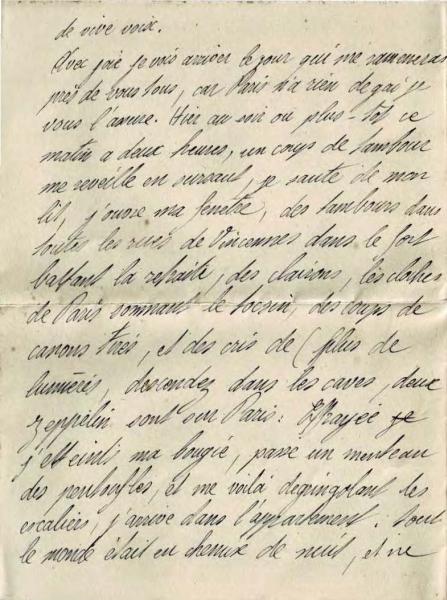 de vive voix.
Avec joie je vois arriver le jour qui me ramenera
près de vous tous, car Paris n'a rien de gai je
vous l'avoue. Hier au soir ou plus-tot ce
matin a deux heures, un coups de tambour
me reveille en sursaut, je saute de mon
lit, j'ouvre ma fenêtre, des tambours dans
toutes les rues de Vincennes dans le fort
battant la retraite, des clairons, les cloches
de Paris sonnant le tocsin, des coups de
canons tirés, et des cris de (plus de
lumières, descendez dans les caves, deux
zeppelin sont sur Paris: Effrayée je
j'etteints ma bougie, passe un manteau
des pantoufles, et me voilà degringolant les
escaliers, j'arrive dans l'appartement: tout
le monde était en chemise de nuit, et